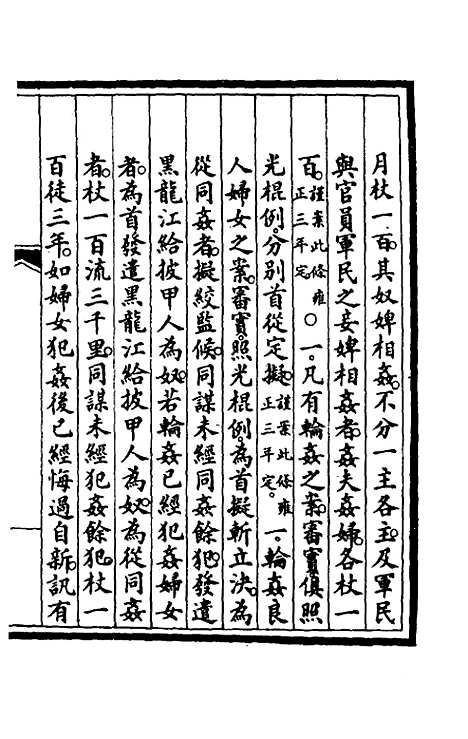 月杖一百。其奴婢相姦。不分一主各主。及軍民
與官員軍民之妾婢相姦者。姦夫姦婦。各杖一
百。謹案此條雍正三年定○一。凡有輪姦之案。審實。俱照
光棍例。分別首從定擬。謹案此條雍正三年定。一。輪姦良
人婦女之案。審實。照光棍例。為首擬斬立決。為
從同姦者。擬絞監候。同謀未經同姦餘犯。發遣
黑龍江給披甲人為奴。若輪姦已經犯姦婦女
者。為首發遣黑龍江給披甲人為奴。為從同姦
者。杖一百流三千里。同謀未經犯姦餘犯。杖一
百徒三年。如婦女犯姦後已經悔過自新。訊有